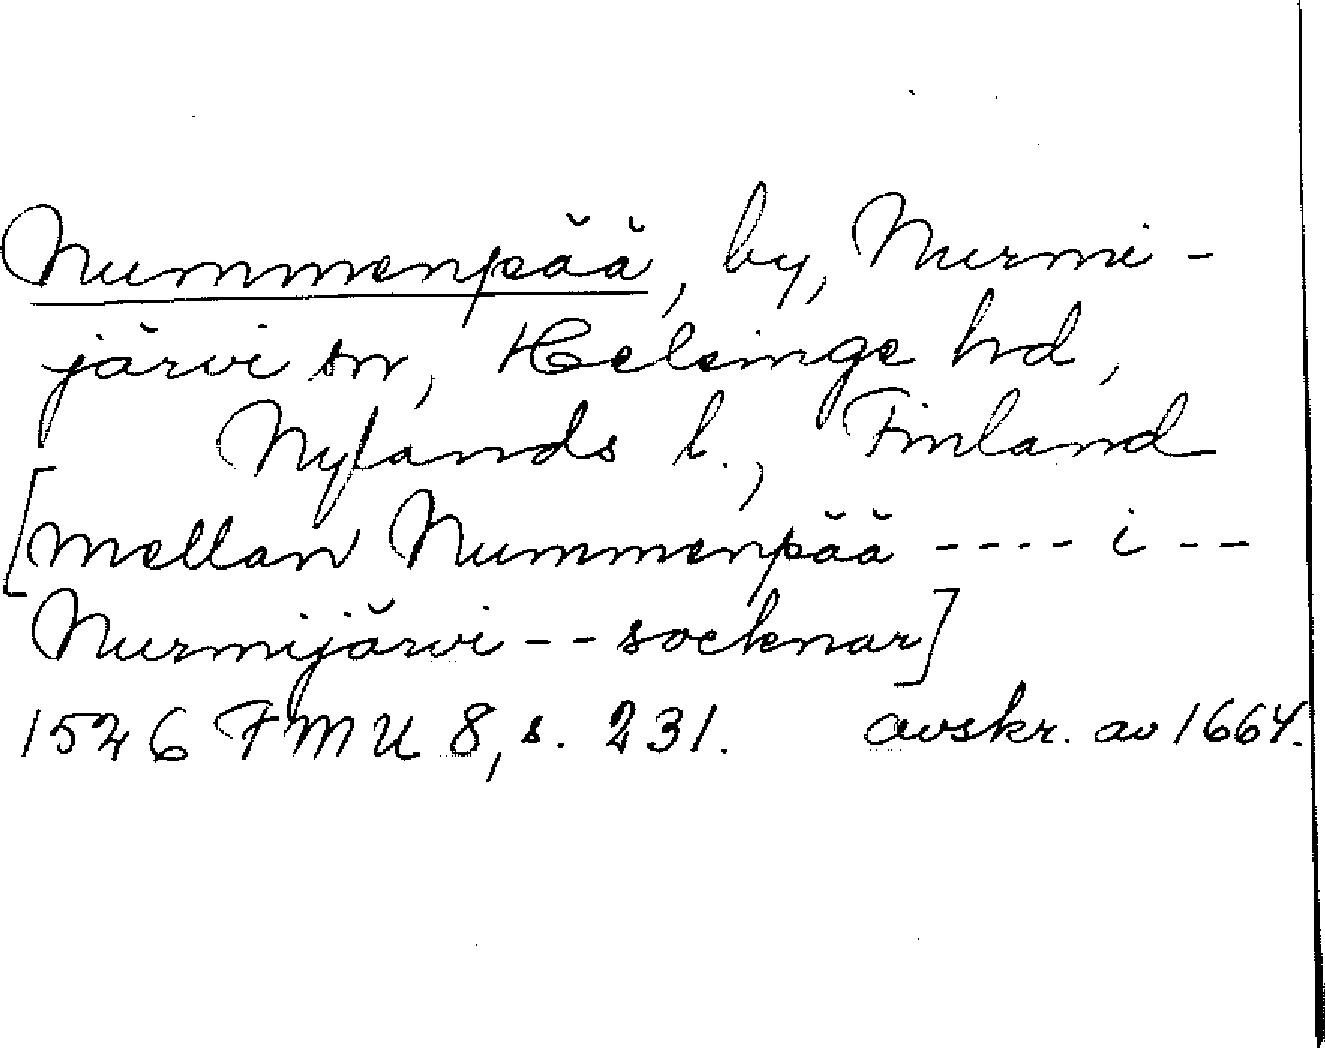 Nummenpää, by, Nurmi-
järvi sn, Helsinge hd,
Nylands l., Finland
[mellan Nummenpää ---- i --
Nurmijärvi -- socknar]
1526 FMU 8, s. 231. avskr. av 1664.